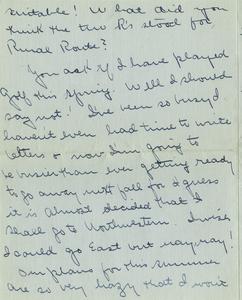 suitable! What did you
think the two R's stood for
Rural Route?
You ask if I have played
Golf this spring. Well I should
say not! I've been so busy I
haven't even had time to write
letters & now I'm going to
be busier than ever getting ready
to go away next fall for I guess
it is almost decided that I
shall go to Northwestern. I wish
I could go East but nay, nay!
Our plans for this summer
are so very hazy that I won't